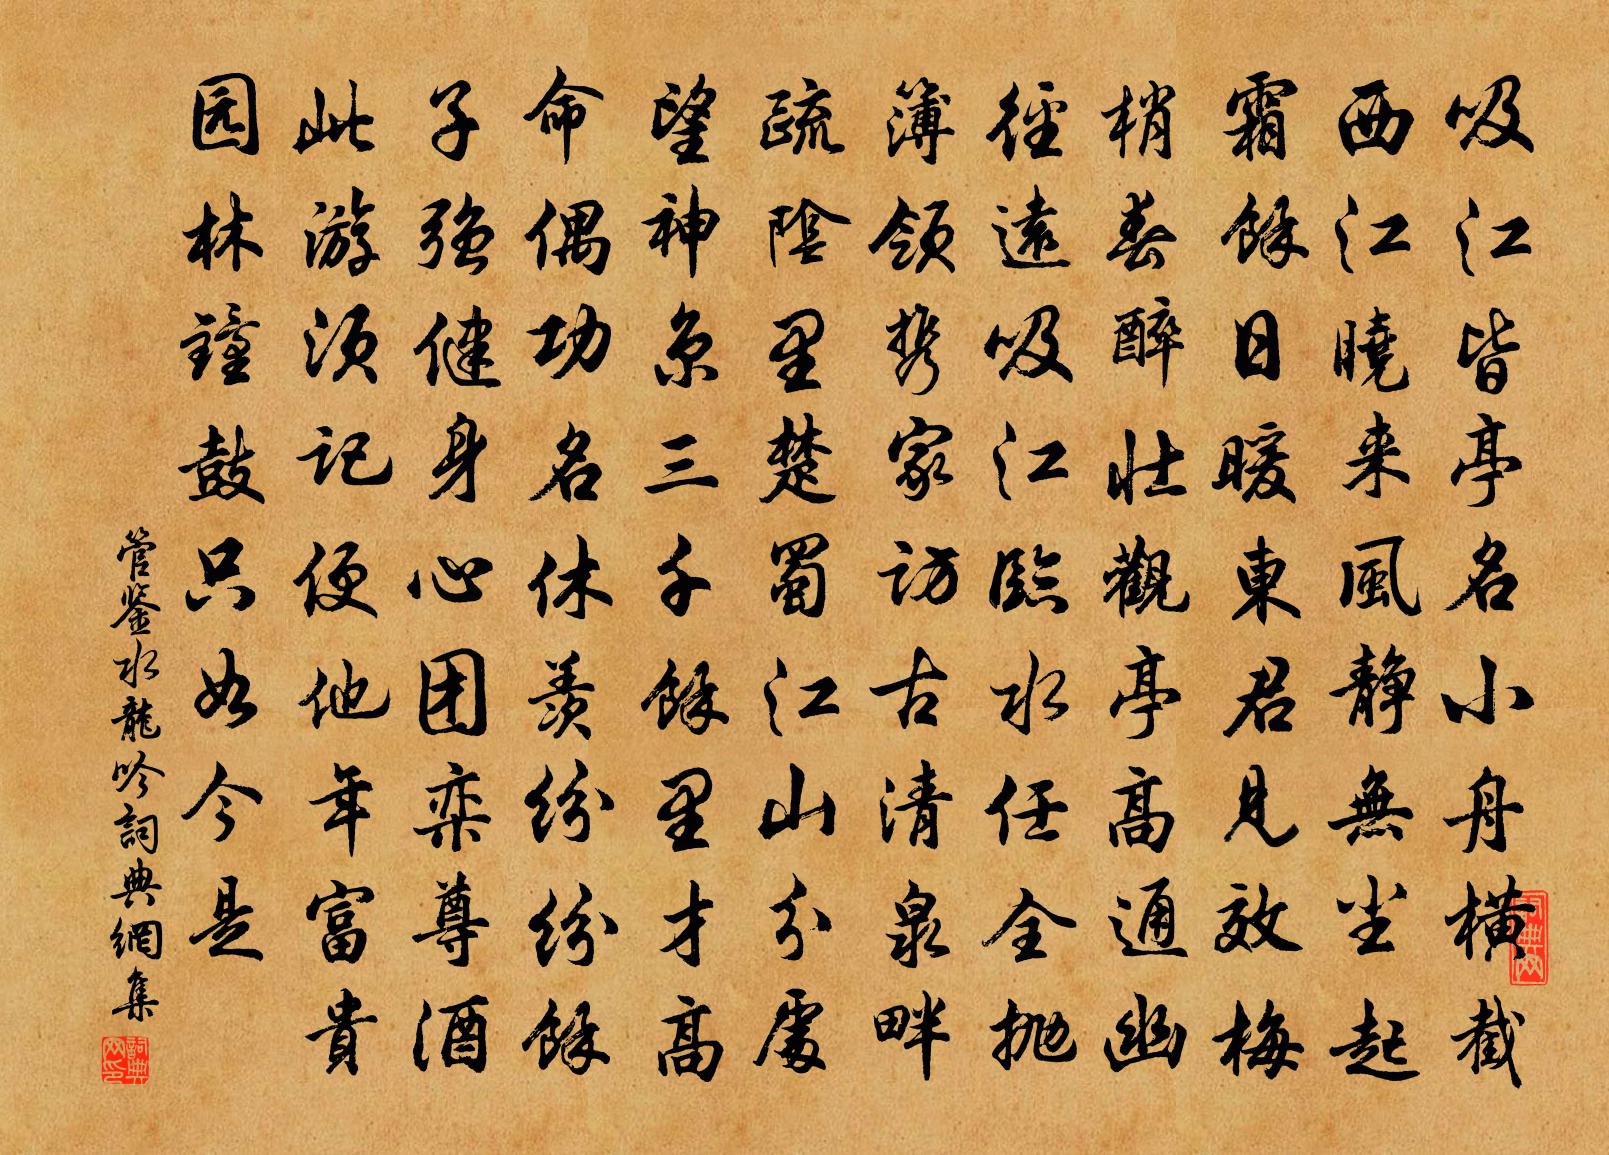 吸江皆亭名小舟横截
西江曉来風静無尘起
霜餘日暖東君見效梅
梢春醉壮觀亭高通幽
徑遠吸江臨水任全抛
簿领携家訪古清泉畔
疏陰里楚蜀江山分處
望神京三千餘里才高
命偶功名休羡纷纷餘
子强健身心团栾尊酒
此游须记便他年富貴
园林鐘鼓只如今是
管鉴水龍吟詞典網集
词典网
詞典网印